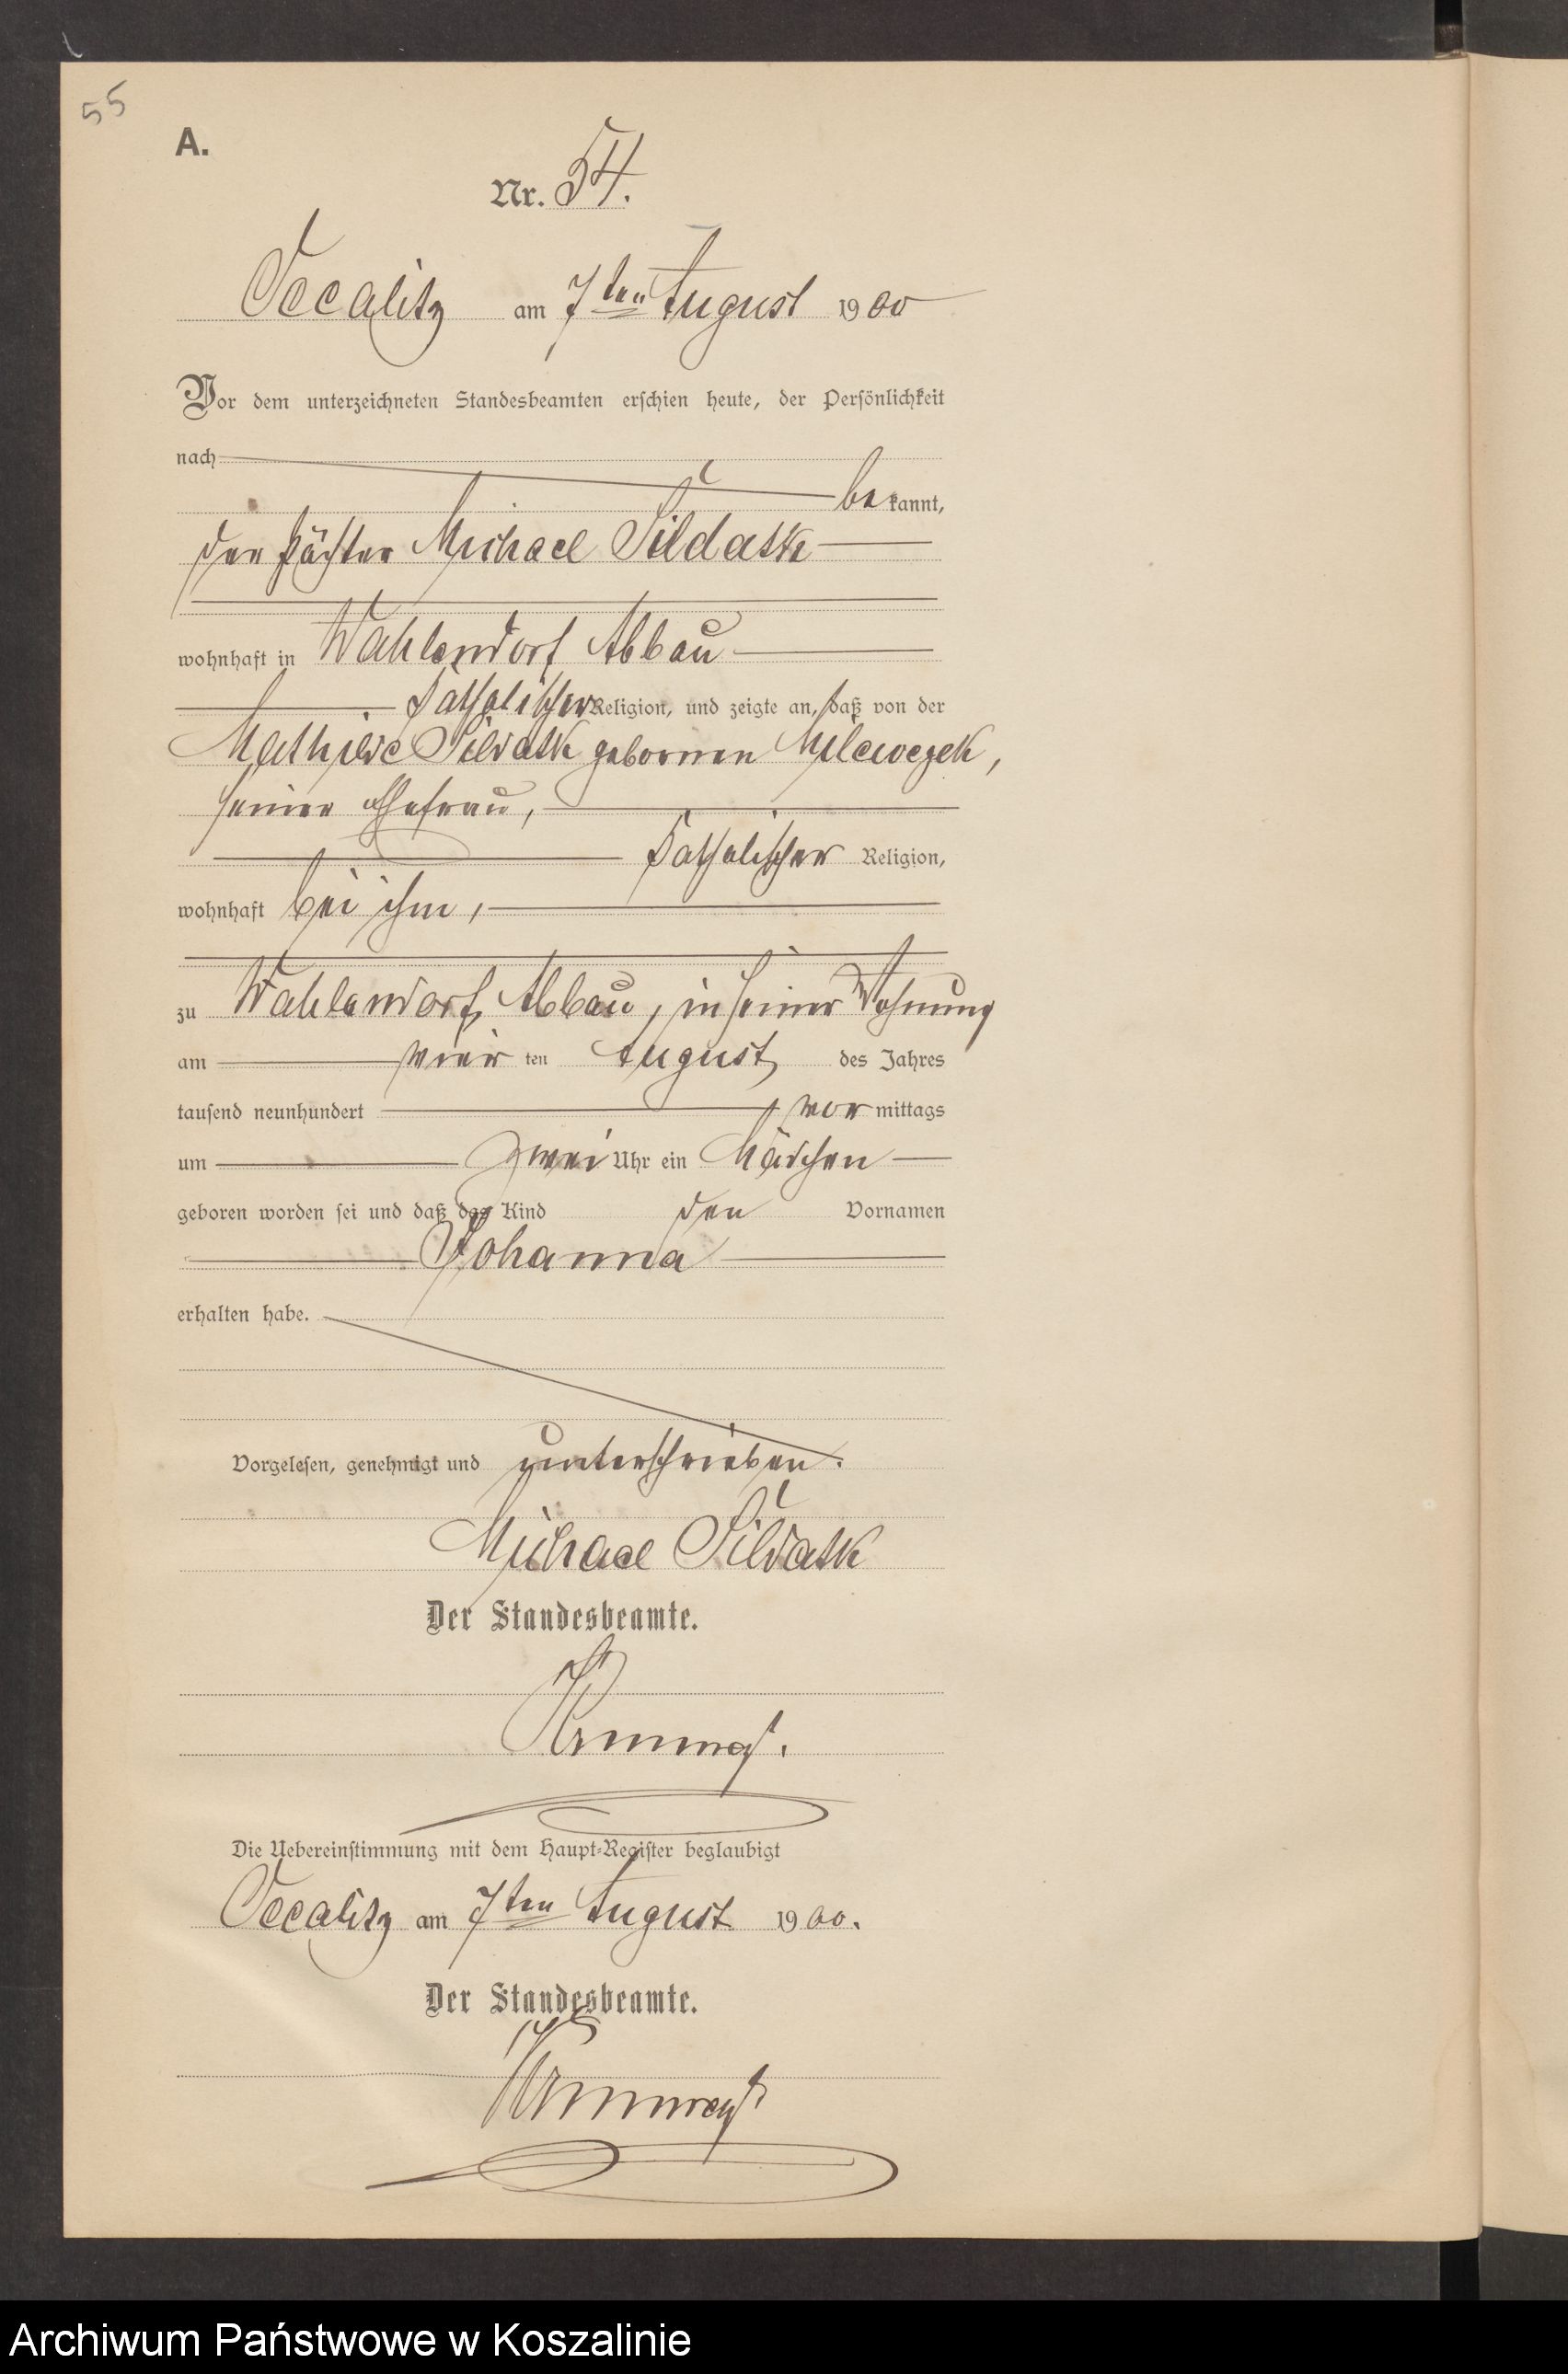 55
A.
Nr. 54.
Occalitz am 7ten August 1900
Vor dem unterzeichneten Standesbeamten erschien heute, der Persönlichkeit
nach
bekannt,
der Pächter Michael Sildatk
wohnhaft in Wahlendorf Abbau
katholischer Religion, und zeigte an, daß von der
Mathilde Sildatk gebornen Milewczek,
seiner Ehefrau,
katholischer Religion,
wohnhaft bei ihm,
zu Wahlendorf Abbau, in seiner Wohnung
am vier ten August des Jahres
tausend neunhundert vor mittags
um zwei Uhr ein Mädchen
geboren worden sei und daß das Kind den Vornamen
Johanna
erhalten habe.
Vorgelesen, genehmigt und unterschrieben.
Michael Sildatk
Der Standesbeamte.
Die Uebereinstimmung mit dem Haupt-Register beglaubigt
Occalitz am 7ten August 1900.
Der Standesbeamte.
Archiwum Państwowe w Koszalinie